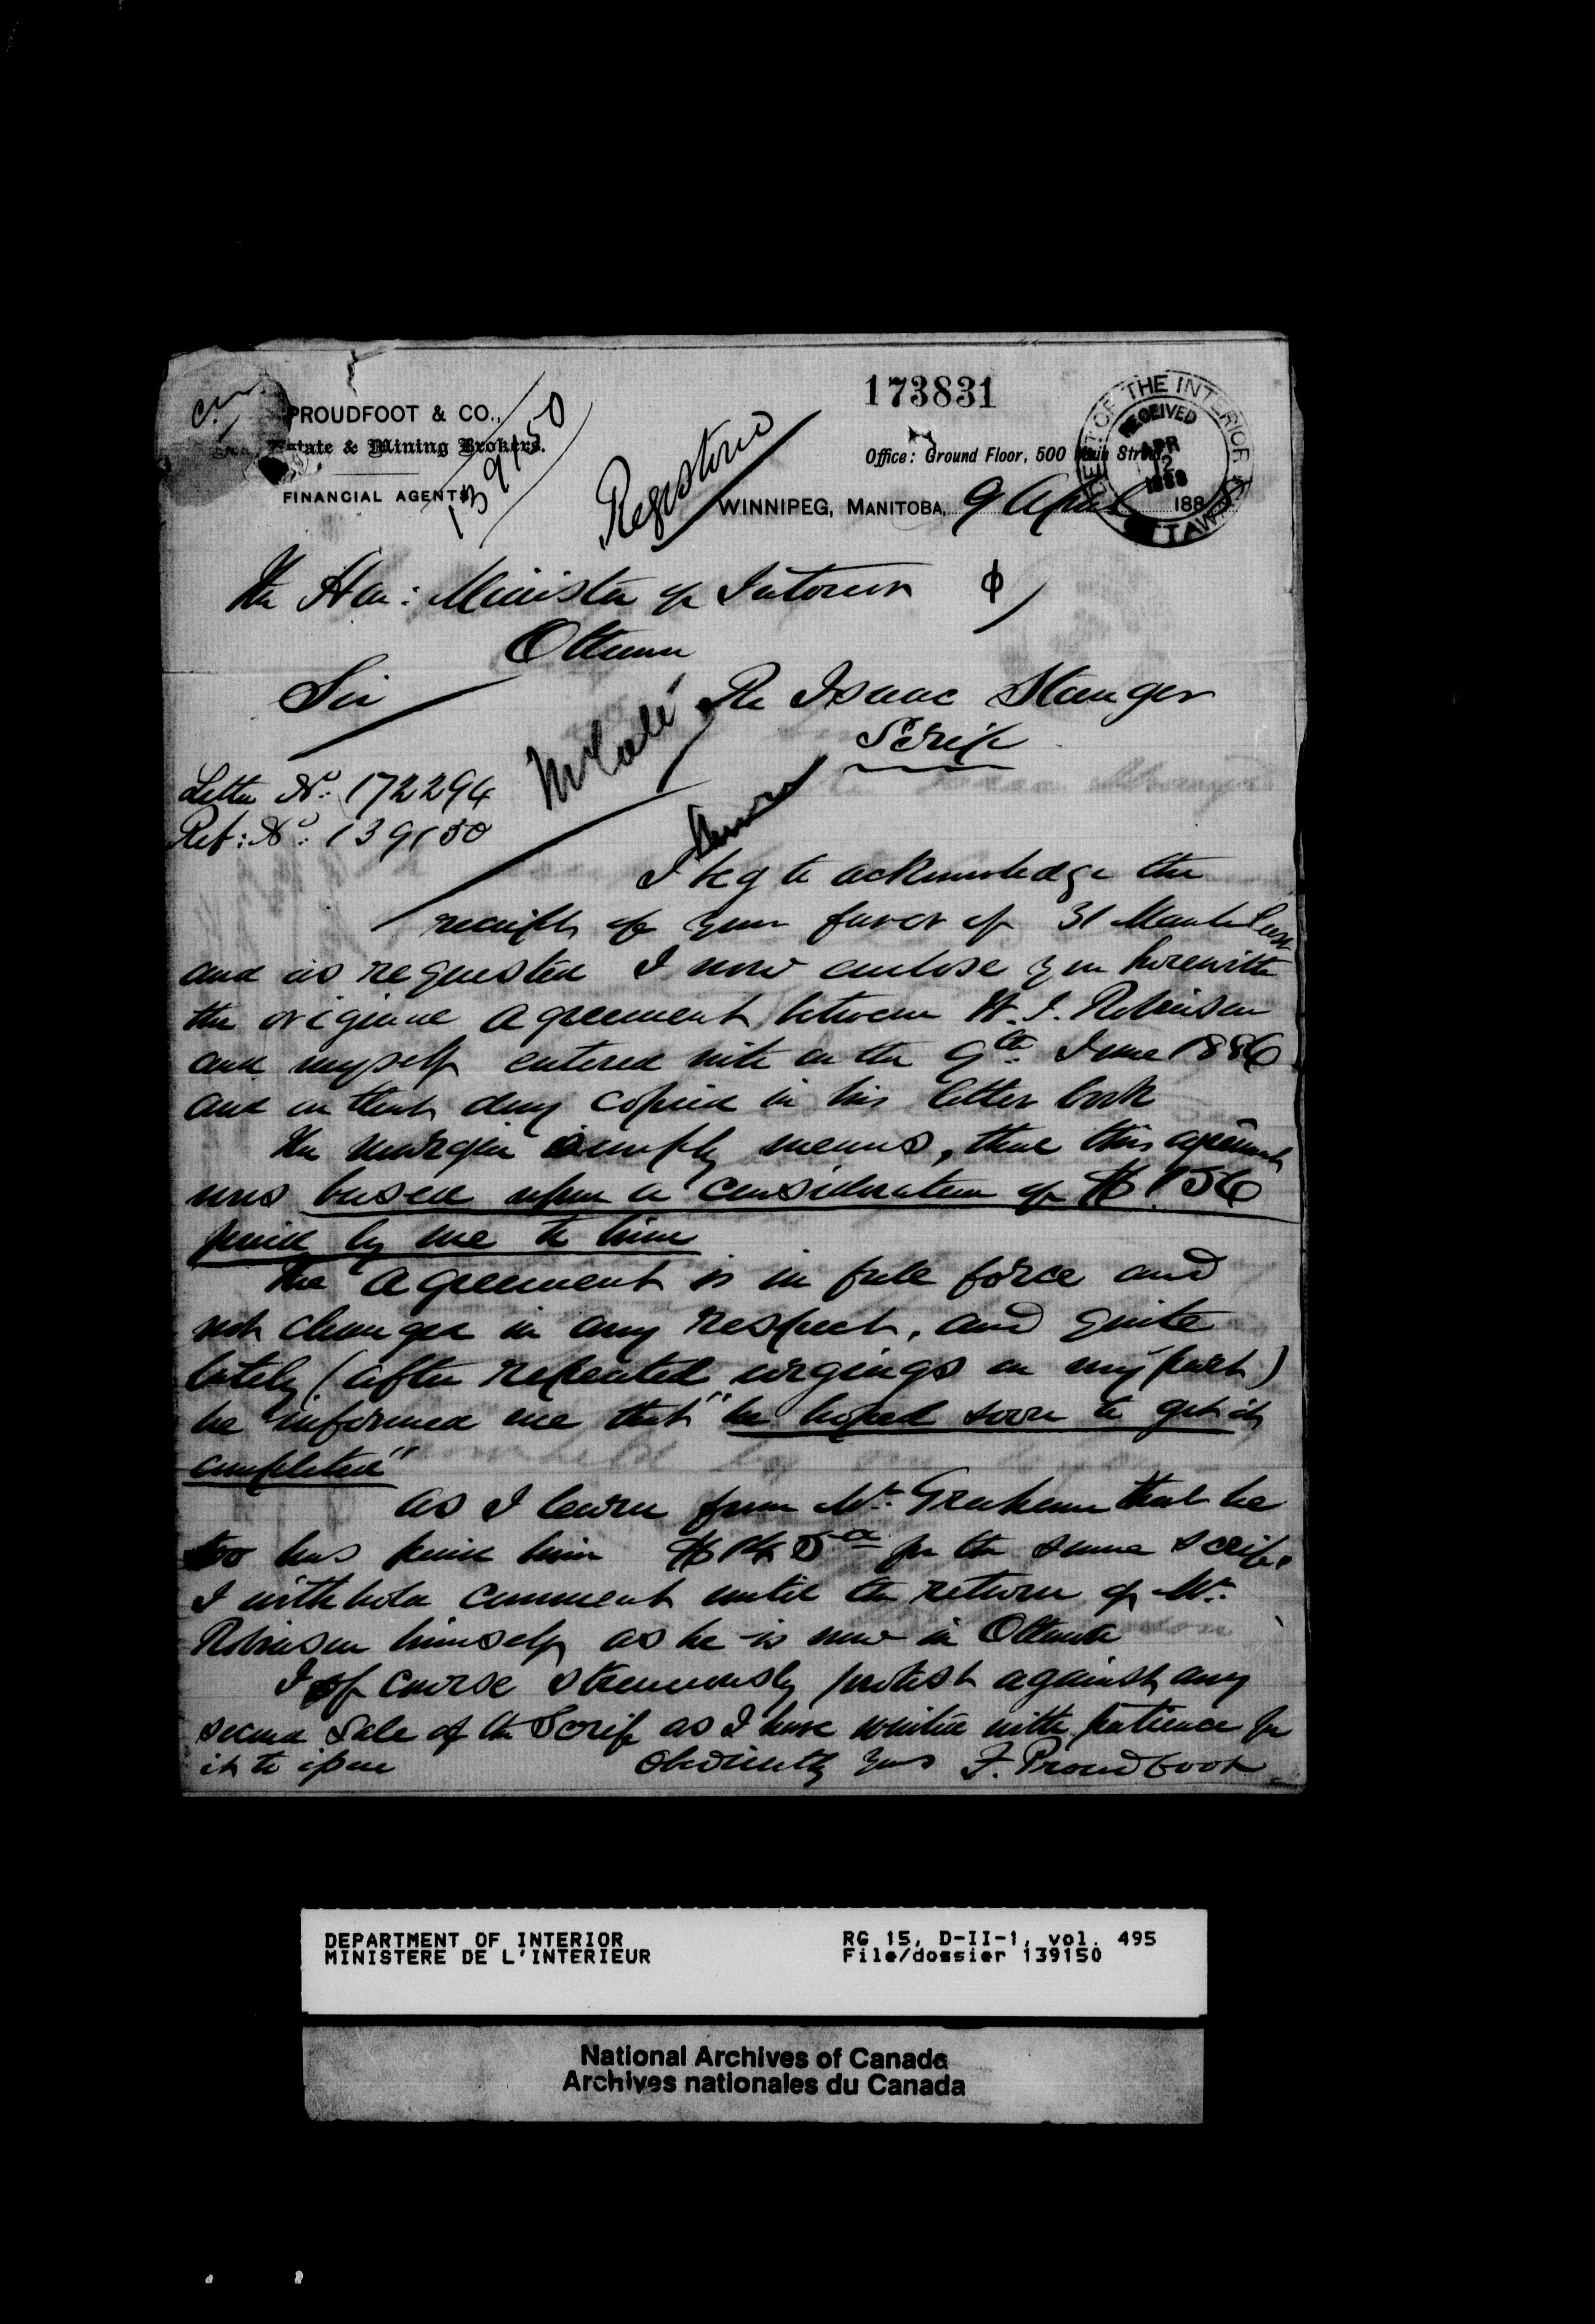 173831
PROUDFOOT & CO.,
Estate & Mining Brokers.
FINANCIAL AGENTS
139150
Registered
Office: Ground Floor, 500 Main Street
DEPT OF THE INTERIOR
RECEIVED
APR
12
1888
OTTAWA
WINNIPEG, MANITOBA, 9 April 1888
The Hon: Minister of Interior
Ottawa
Sir
Re Isaac Stanger
Scrip
Letter No: 172294
Ref: No: 139150
I beg to acknowledge the
receipt of your favor of 31 March last
and as requested I now enclose you herewith
the original agreement between H. I. Robinson
and myself entered into on the 9th June 1886
and on that day copied in his letter book
The margin simply means, that this agreement
was based upon a consideration of $156
paid by me to him
The agreement is in full force and
not changed in any respect, and quite
lately (after repeated urgings on my part)
he informed me that "he hoped soon to get it
completed"
As I learn from Mr. Graham that he
too has paid him for the same scrip.
I withhold comment until the return of Mr.
Robinson himself as he is now in Ottawa
I of course strenuously protest against any
second sale of the Scrip as I have waited with patience for
it to issue
Obediently yours F. Proudfoot
DEPARTMENT OF INTERIOR
MINISTERE DE L'INTERIEUR
RG 15, D-II-1, vol. 495
File/dossier 139150
National Archives of Canada
Archives nationales du Canada